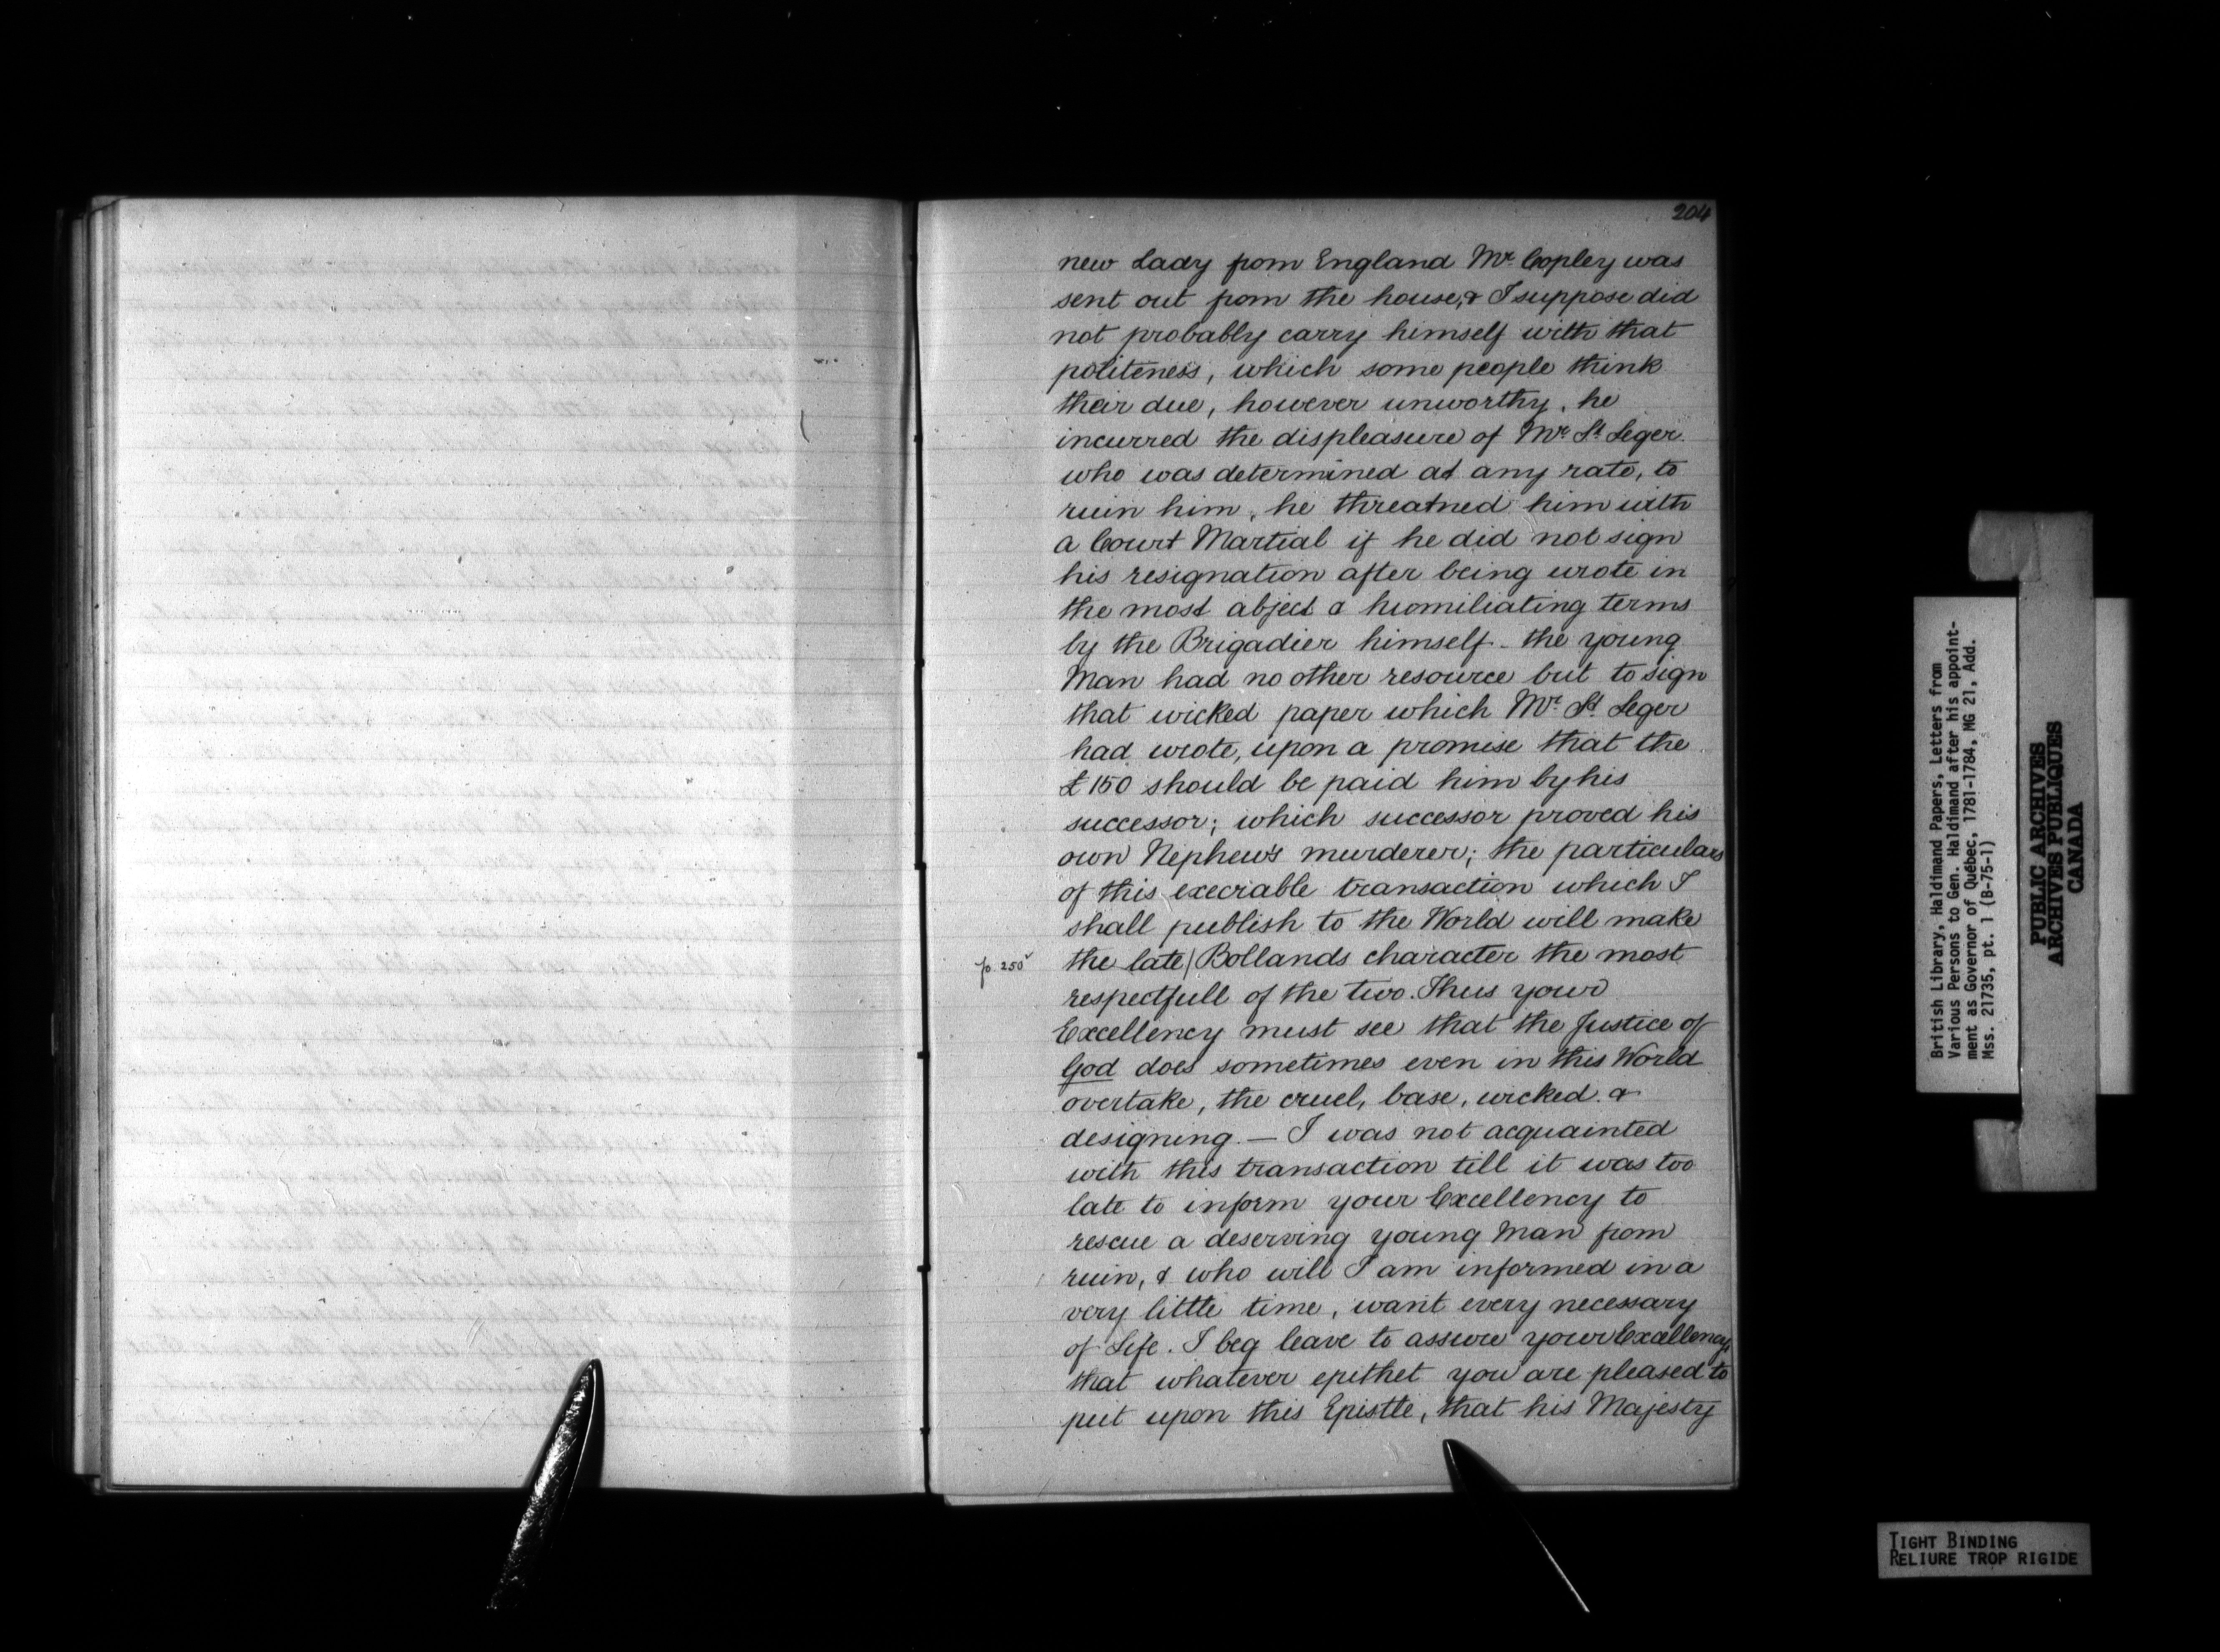 204
new Lady from England Mr. Copley was
sent out from the house, & I suppose did
not probably carry himself with that
politeness, which some people think
their due, however unworthy, he
incurred the displeasure of Mr. St. Leger
who was determined at any rate, to
ruin him, he threatned him with
a Court Martial if he did not sign
his resignation after being wrote in
the most abject & humiliating terms
by the Brigadier himself - the young
Man had no other resource but to sign
that wicked paper which Mr. St. Leger
had wrote, upon a promise that the
£150 should be paid him by his
successor; which successor proved his
own Nephew's murderer; the particulars
of this execrable transaction which I
shall publish to the World will make
fo. 250v the late/Bollands character the most
respectfull of the two. Thus your
Excellency must see that the Justice of
God does sometimes even in this World
overtake, the cruel, base, wicked. &
designing. — I was not acquainted
with this transaction till it was too
late to inform your Excellency to
rescue a deserving young Man from
ruin, & who will I am informed in a
very little time, want every necessary
of Life. I beg leave to assure your Excellency,
that whatever epithet you are pleased to
put upon this Epistle, that his Majesty
British Library, Haldimand Papers, Letters from
Various Persons to Gen. Haldimand after his appoint-
ment as Governor of Québec, 1781-1784, MG 21, Add.
Mss. 21735, pt. 1 (B-75-1)
PUBLIC ARCHIVES
ARCHIVES PUBLIQUES
CANADA
TIGHT BINDING
RELIURE TROP RIGIDE